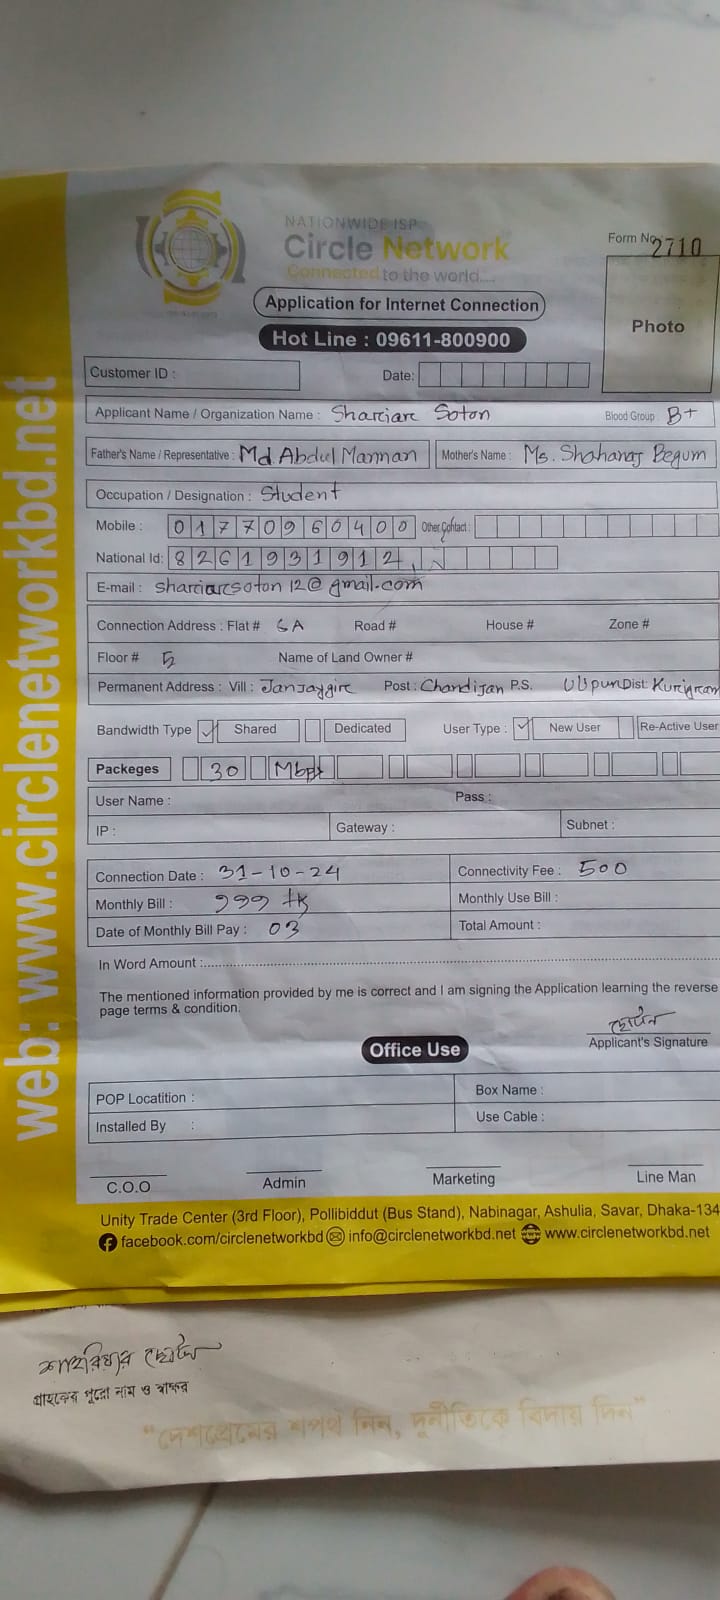 NATIONWIDE ISP
Circle Network
Connected to the world....
Form No. 2710
Application for Internet Connection
Hot Line : 09611-800900
Photo
Customer ID :
Date:
Applicant Name / Organization Name : Sharciarc Soton Blood Group B+
Father's Name / Representative : Md. Abdul Mannan Mother's Name : Ms. Shahanaj Begum
Occupation / Designation : Student
Mobile : 01770960400 Other Contact :
National Id: 8261931912
E-mail : sharciarcsoton12@gmail.com
Connection Address : Flat # 6A Road # House # Zone #
Floor # 5 Name of Land Owner #
Permanent Address : Vill : Janjaygirc Post : Chandijan P.S. Ulipur Dist: Kurigram
Bandwidth Type Shared Dedicated User Type : New User Re-Active User
Packeges 30 Mbps
User Name : Pass :
IP : Gateway : Subnet :
Connection Date : 31-10-24 Connectivity Fee : 500
Monthly Bill : 999 tk Monthly Use Bill :
Date of Monthly Bill Pay : 03 Total Amount :
In Word Amount :
The mentioned information provided by me is correct and I am signing the Application learning the reverse
page terms & condition.
ছোটন
Applicant's Signature
Office Use
POP Locatition : Box Name :
Installed By : Use Cable :
C.O.O Admin Marketing Line Man
Unity Trade Center (3rd Floor), Pollibiddut (Bus Stand), Nabinagar, Ashulia, Savar, Dhaka-134
facebook.com/circlenetworkbd info@circlenetworkbd.net www.circlenetworkbd.net
web: www.circlenetworkbd.net
শাহরিয়ার ছোটন
গ্রাহকের পুরো নাম ও স্বাক্ষর
"দেশপ্রেমের শপথ নিন, দূর্নীতিকে বিদায় দিন"